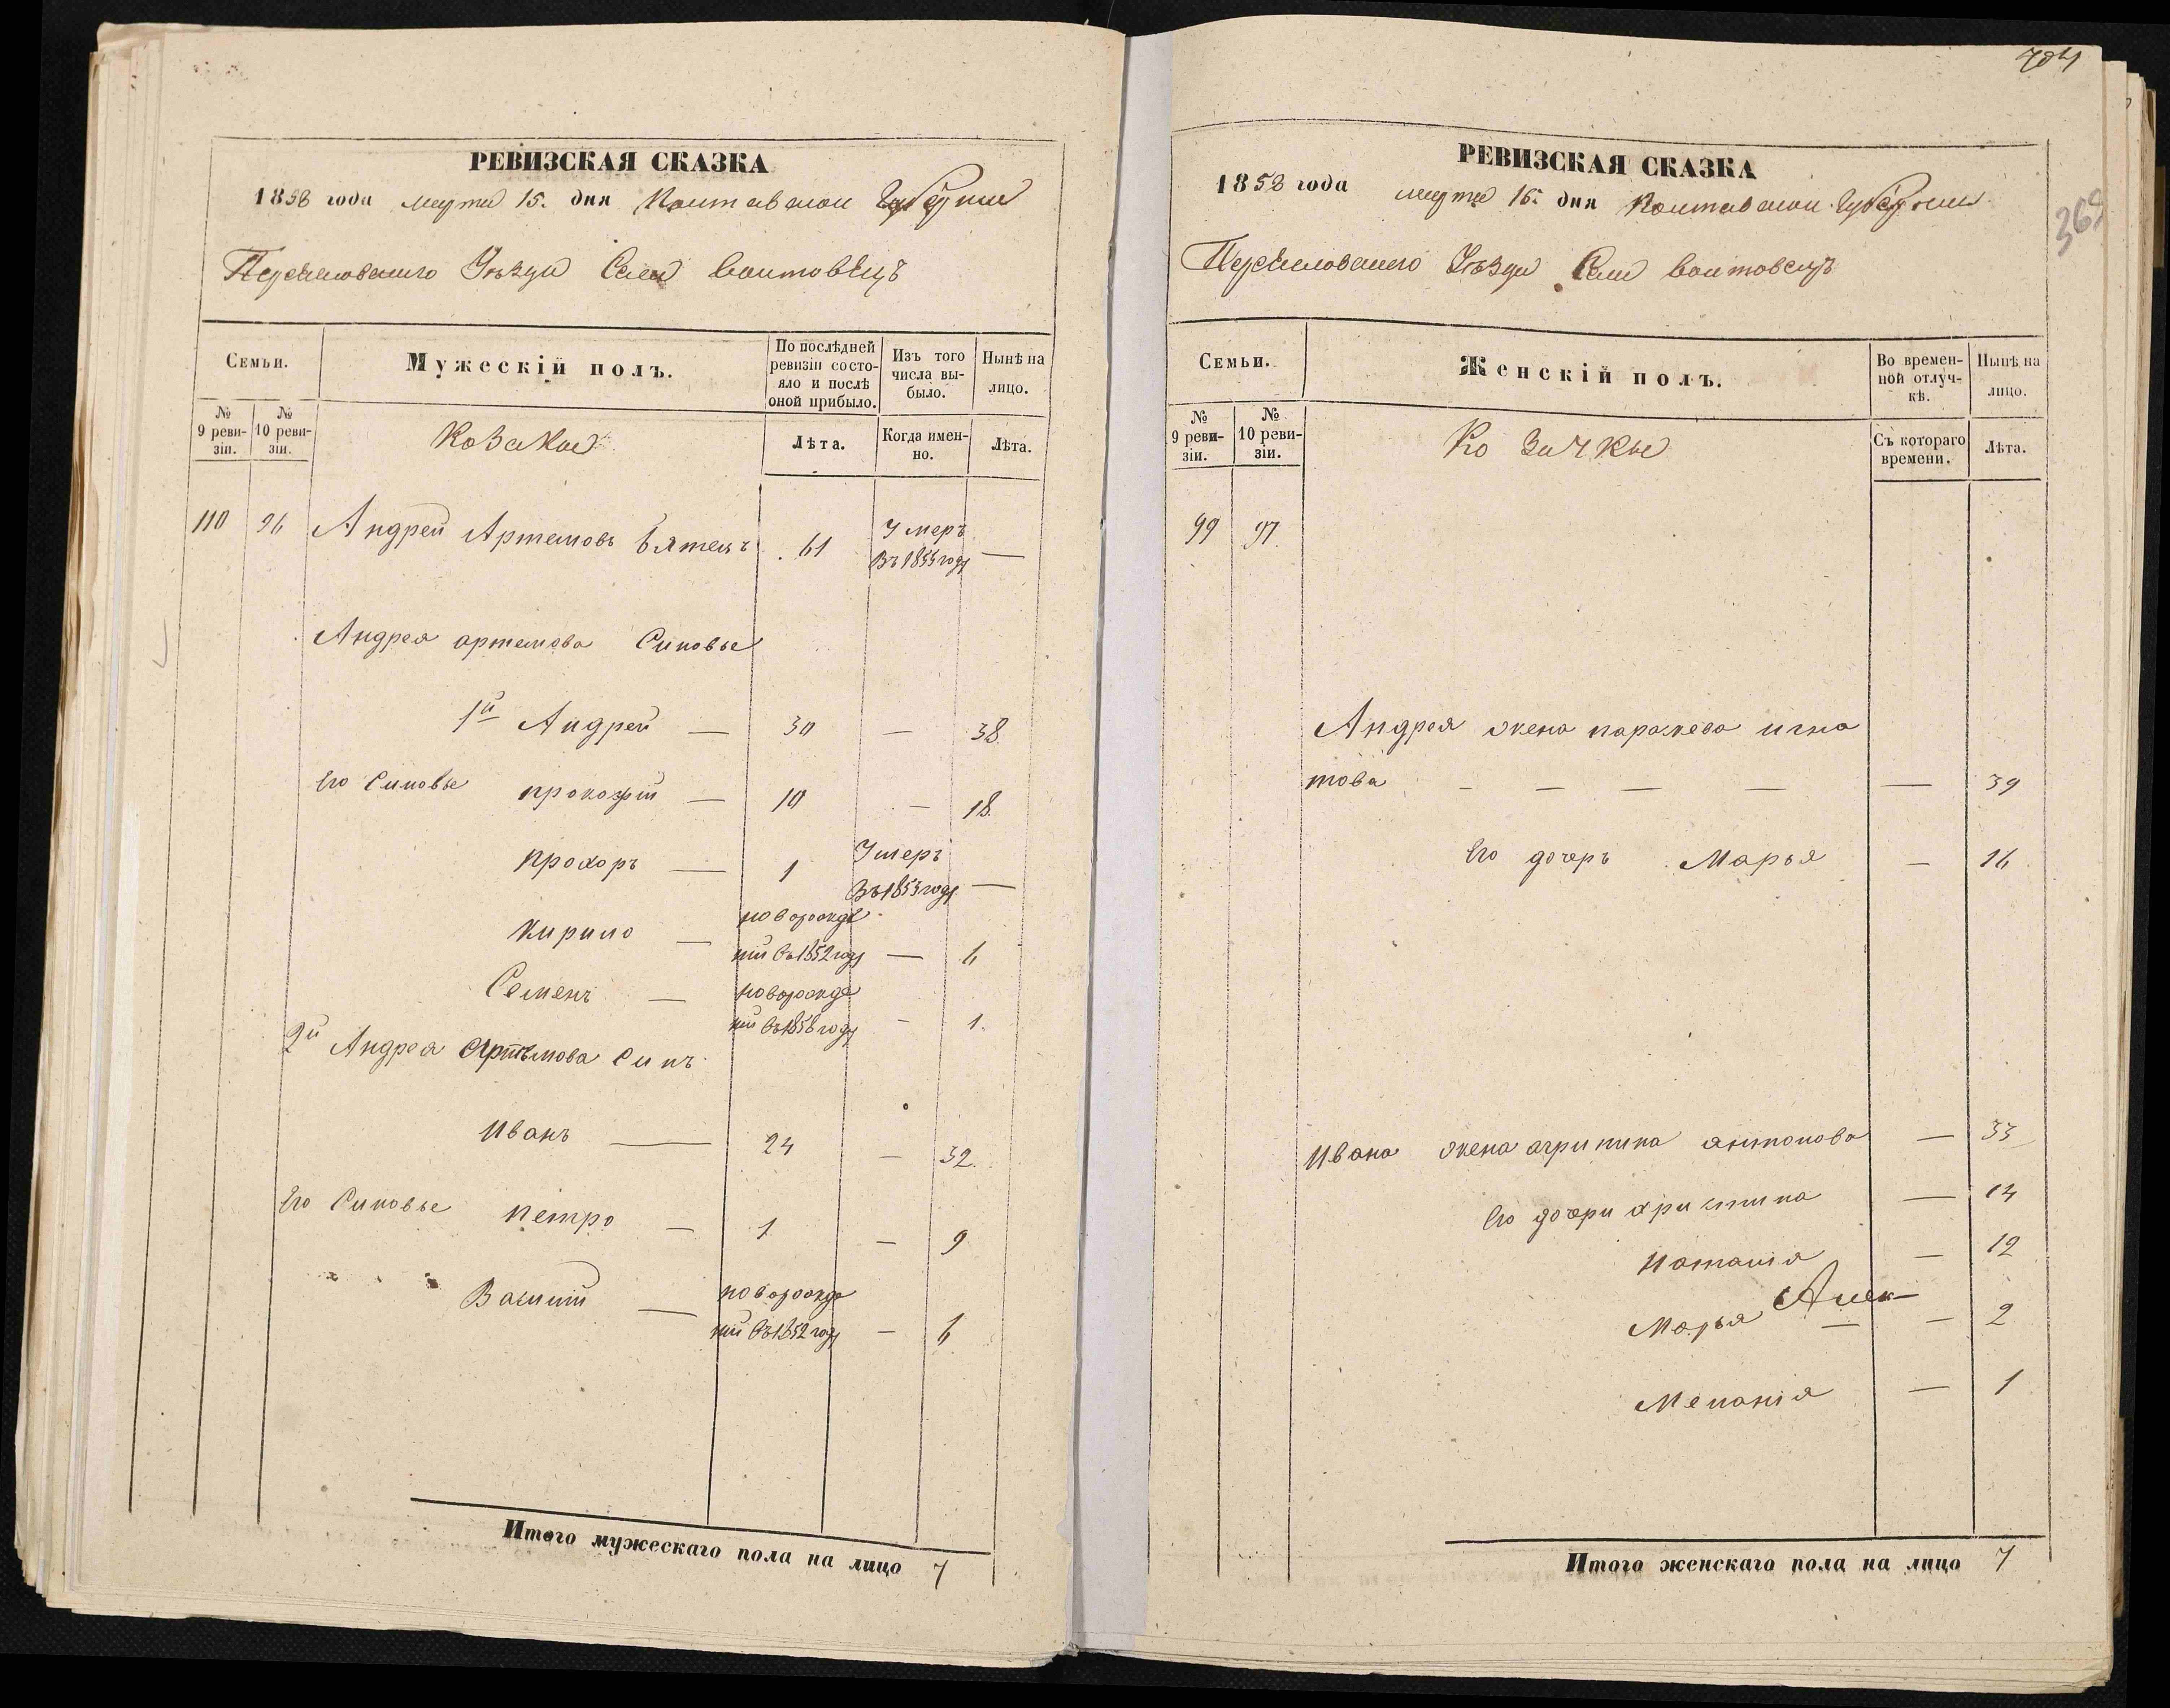 РЕВИЗСКАЯ СКАЗКА
1858 года марта 15. дня Полтавской Губернии
Переяславского Уѣзда Села Войтовецъ
Семьи.
Мужескій полъ.
По послѣдней ревизіи состояло и послѣ оной прибыло.
Изъ того числа выбыло.
Нынѣ на лицо.
№ 9 ревизіи.
№ 10 ревизіи.
Козаки
Лѣта.
Когда именно.
Лѣта.
110 96 Андрей Артемовъ 61 Умеръ
въ 1855 году —
Андрея артемова Синовье
1й Андрей — 30 — 38.
Его Синовье прокофій — 10 — 18.
прохоръ — 1 Умеръ
въ 1853 году —
кирило — новорожде
ній въ 1852 году — 6
Семенъ — новорожде
ній въ 1858 году — 1.
2й Андрея Артемова Синъ
Иванъ — 24 — 32.
Его Синовье петро — 1 — 9
Василій — новорожде
ній въ 1852 году — 6
Итого мужескаго пола на лицо 7
704
369
РЕВИЗСКАЯ СКАЗКА
1858 года марта 15. дня Полтавской Губернии
Переяславского Уѣзда Села Войтовецъ
Семьи.
Женскій полъ.
Во временной отлучкѣ.
Нынѣ на лицо.
№ 9 ревизіи.
№ 10 ревизіи.
Козачки
Съ котораго времени.
Лѣта.
99 97.
Андрея жена параскева игна
това — — — — — 39
Его дочеръ Марья — 16
Ивана жена агрипина антонова — 33
Его дочери христина — 14
Наталія — 12
Марья Алек — — 2
Меланія — 1
Итого женскаго пола на лицо 7